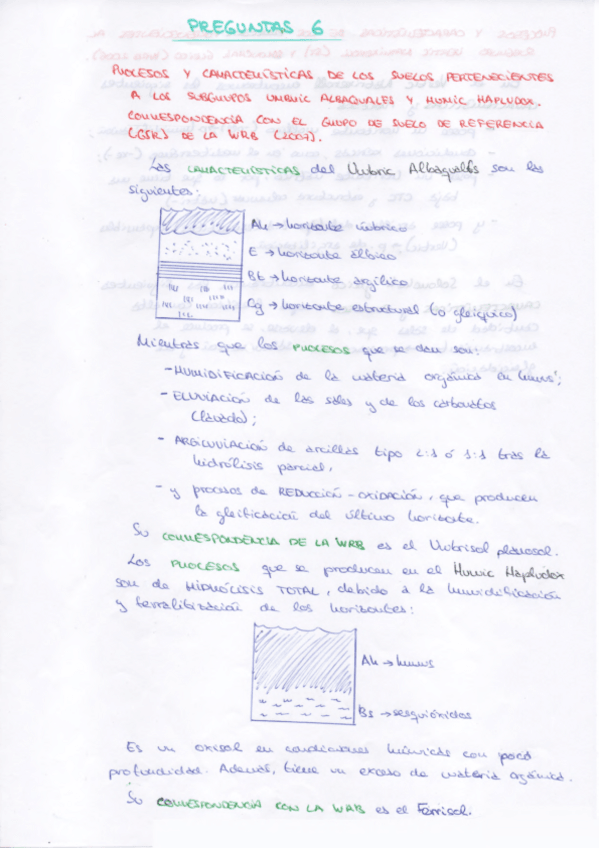 PREGUNTAS 6
PROCESOS Y CARACTERÍSTICAS DE LOS SUELOS PERTENECIENTES
A LOS SUBGRUPOS UMBRIC ALBAQUALFS Y HUMIC HAPLUDOX.
CORRESPONDENCIA CON EL GRUPO DE SUELO DE REFERENCIA
(GSR) DE LA WRB (2007).
Las CARACTERÍSTICAS del Umbric Albaqualfs son las
siguientes:
Ah → horizonte úmbrico
E → horizonte álbico
Bt → horizonte argílico
Cg → horizonte estructural (o gleiquico)
Mientras que los PROCESOS que se dan son:
- HUMIDIFICACIÓN de la materia orgánica en humus;
- ELUVIACIÓN de las sales y de los carbonatos
(lavado);
- ARGILUVIACIÓN de arcillas tipo 2:1 ó 1:1 tras la
hidrólisis parcial,
- y procesos de REDUCCIÓN-OXIDACIÓN, que producen
la gleificación del último horizonte.
Su CORRESPONDENCIA DE LA WRB es el Umbrisol planosol.
Los PROCESOS que se producen en el Humic Hapludox
son de HIDRÓLISIS TOTAL, debido a la humidificación
y ferralitización de los horizontes:
Ah → humus
Bs → sesquióxidos
Es un oxisol en condiciones húmicas con poca
profundidad. Además, tiene un exceso de materia orgánica.
Su CORRESPONDENCIA CON LA WRB es el Ferrisol.